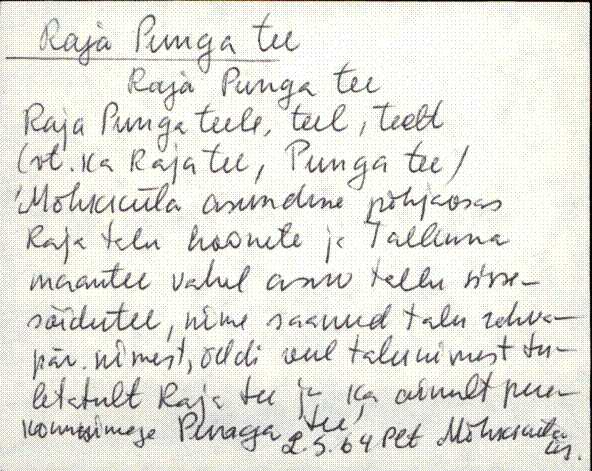 Raja Punga tee
Raja Punga tee
Raja Punga teele, teel, teelt
(vt. ka Raja tee, Punga tee)
Mõhkküla asunduse põhjaosas
Raja talu hoonete ja Tallinna
maantee vahel asuv tallu sisse-
sõidutee, nime saanud talu rahva-
pär. nimest, öeldi veel talunimest tu-
letatult Raja tee ja ka ainult pere-
konnanimega Punaga tee,
2.5.64 Plt Mõhkküla